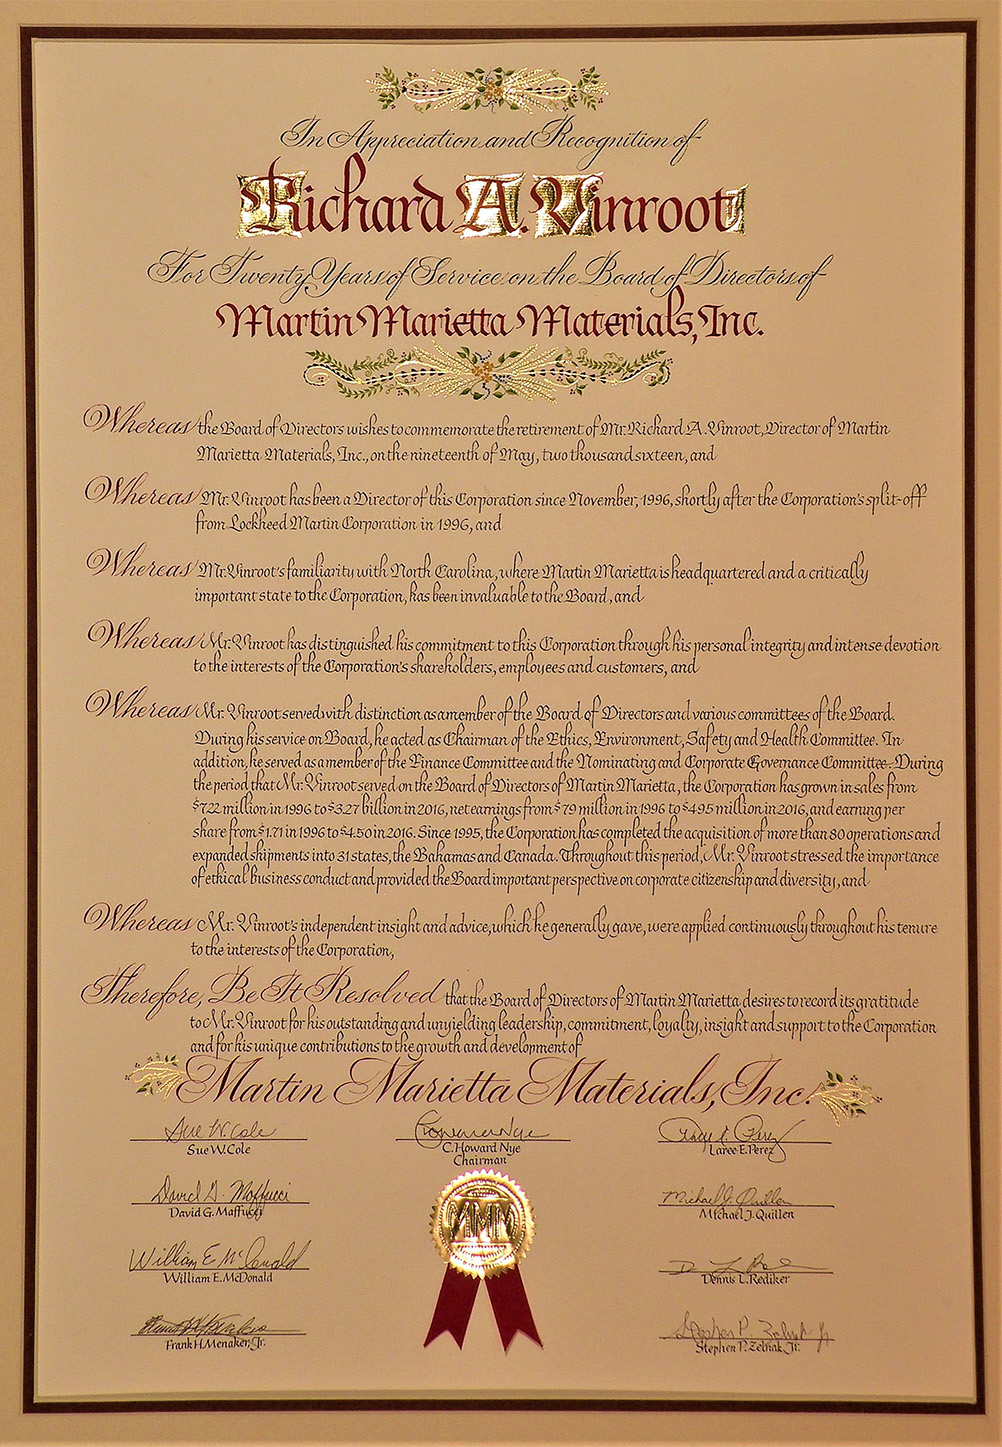 In Appreciation and Recognition of
Richard A. Vinroot
For Twenty Years of Service on the Board of Directors of
Martin Marietta Materials, Inc.
Whereas the Board of Directors wishes to commemorate the retirement of Mr. Richard A. Vinroot, Director of Martin
Marietta Materials, Inc., on the nineteenth of May, two thousand sixteen, and
Whereas Mr. Vinroot has been a Director of this Corporation since November, 1996, shortly after the Corporation's split-off
from Lockheed Martin Corporation in 1996, and
Whereas Mr. Vinroot's familiarity with North Carolina, where Martin Marietta is headquartered and a critically
important state to the Corporation, has been invaluable to the Board, and
Whereas Mr. Vinroot has distinguished his commitment to this Corporation through his personal integrity and intense devotion
to the interests of the Corporation's shareholders, employees and customers, and
Whereas Mr. Vinroot served with distinction as a member of the Board of Directors and various committees of the Board.
During his service on Board, he acted as Chairman of the Ethics, Environment, Safety and Health Committee. In
addition, he served as a member of the Finance Committee and the Nominating and Corporate Governance Committee. During
the period that Mr. Vinroot served on the Board of Directors of Martin Marietta, the Corporation has grown in sales from
$722 million in 1996 to $3.27 billion in 2016, net earnings from $79 million in 1996 to $495 million in 2016, and earning per
share from $1.71 in 1996 to $4.50 in 2016. Since 1995, the Corporation has completed the acquisition of more than 80 operations and
expanded shipments into 31 states, the Bahamas and Canada. Throughout this period, Mr. Vinroot stressed the importance
of ethical business conduct and provided the Board important perspective on corporate citizenship and diversity, and
Whereas Mr. Vinroot's independent insight and advice, which he generally gave, were applied continuously throughout his tenure
to the interests of the Corporation,
Therefore, Be It Resolved that the Board of Directors of Martin Marietta desires to record its gratitude
to Mr. Vinroot for his outstanding and unyielding leadership, commitment, loyalty, insight and support to the Corporation
and for his unique contributions to the growth and development of
Martin Marietta Materials, Inc.
Sue W. Cole
Sue W. Cole
C. Howard Nye
Chairman
Laree E. Perez
David G. Maffucci
David G. Maffucci
Michael J. Quillen
Michael J. Quillen
William E. McDonald
William E. McDonald
Dennis L. Rediker
Frank H. Menaker, Jr.
Stephen P. Zelnak Jr
Stephen P. Zelnak, Jr.
MMM